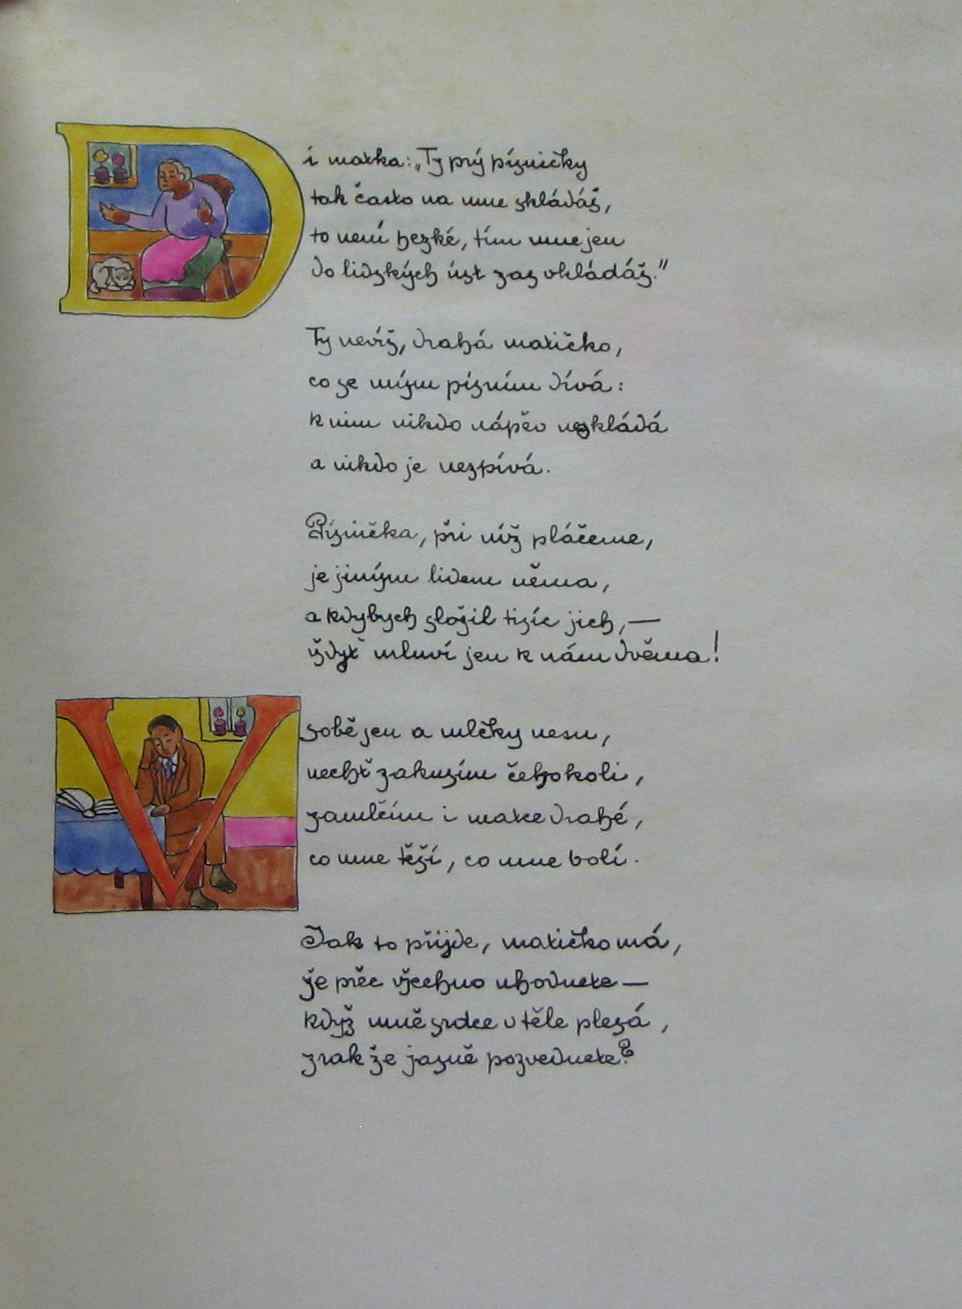 Dí matka: „Ty prý písničky
tak často na mne skládáš,
to není hezké, tím mne jen
do lidských úst zas vkládáš."
Ty nevíš, drahá matičko,
co se mým písním dívá:
k nim nikdo nápěv neskládá
a nikdo je nezpívá.
Písnička, při níž pláčeme,
je jiným lidem něma,
a kdybych složil tisíc jich,—
vždyť mluví jen k nám dvěma!
V sobě jen a mlčky nesu,
nechť zakusím čehokoli,
zamlčím i matce drahé,
co mne těží, co mne bolí.
Jak to přijde, matičko má,
že přec všechno uhodnete —
když mně srdce v těle plesá,
zrak že jasně pozvednete?